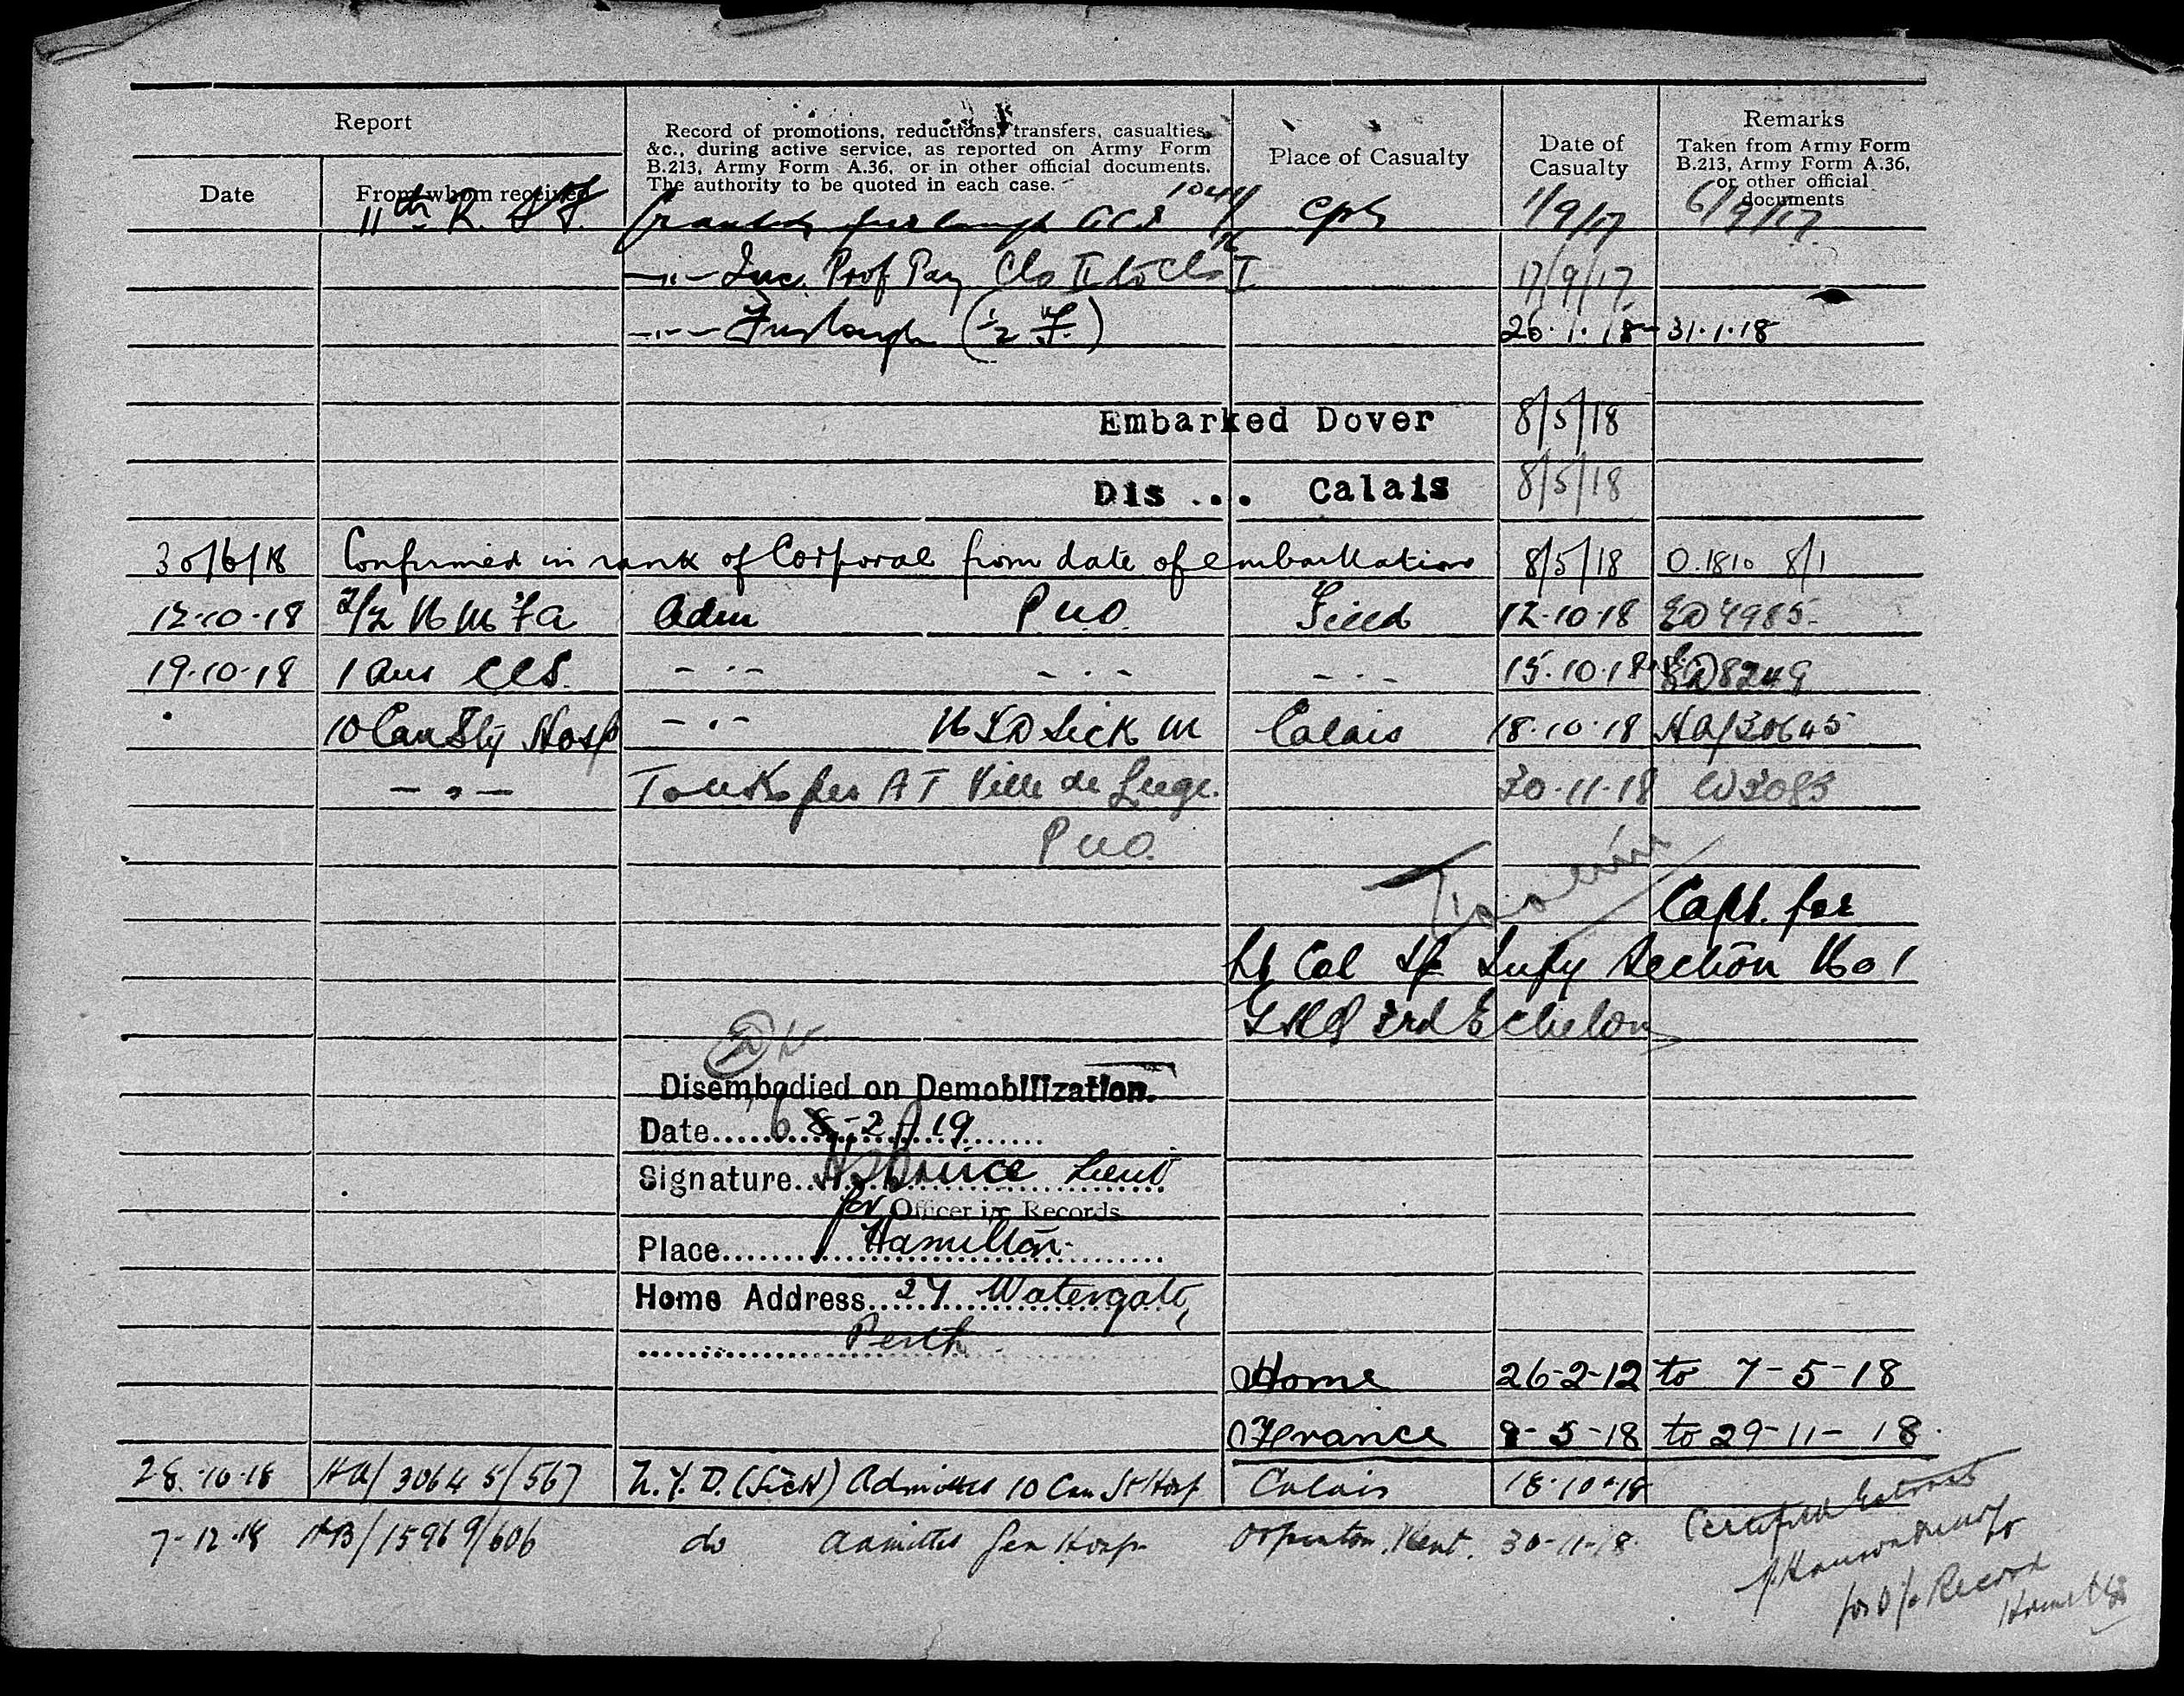 Report
Record of promotions, reductions, transfers, casualties, &c., during active service, as reported on Army Form B.213, Army Form A.36, or in other official documents. The authority to be quoted in each case.
Place of Casualty
Date of Casualty
Remarks Taken from Army Form B.213, Army Form A.36, or other official documents
Date
From whom received
11th R. furlough Cpl 1/9/17 6/9/17
-"- Inc. Prof Pay Cls II to Cls I 17/9/17
-"- Furlough (1/2 F.) 26.1.18- 31.1.18
Embarked Dover 8/5/18
Dis ... Calais 8/5/18
30/6/18 Confirmed in rank of Corporal from date of embarkation 8/5/18 O.1810 8/1
12-10-18 Adm P.U.O. Field 12-10-18 ED 4985
19-10-18 1 Aus CCS. -"- -"- -"- 15.10.18 ED8249
10 Can Sty Hosp -"- NYD Sick Calais 18.10.18 HA/30645
-"- To UK per AT Ville de Liege. 30-11-18 W3083
PUO.
Capt. for
Lt Col Section No 1
GHQ 3rd Echelon
Disembodied on Demobilization.
Date 6 8-2-19
Signature Lieut
for Officer in Records
Place Hamilton
Home Address 27 Watergate,
Perth
Home 26-2-12 to 7-5-18
France 8-5-18 to 29-11-18
28.10.18 HA/30645/567 N.Y.D. (Sick) Admitted 10 Can St Hosp Calais 18.10.18
7-12-18 HB/15969/606 do admitted Gen Hosp Orpington, Kent. 30-11-18
Certified Extract
for O/c Record
Hamilton